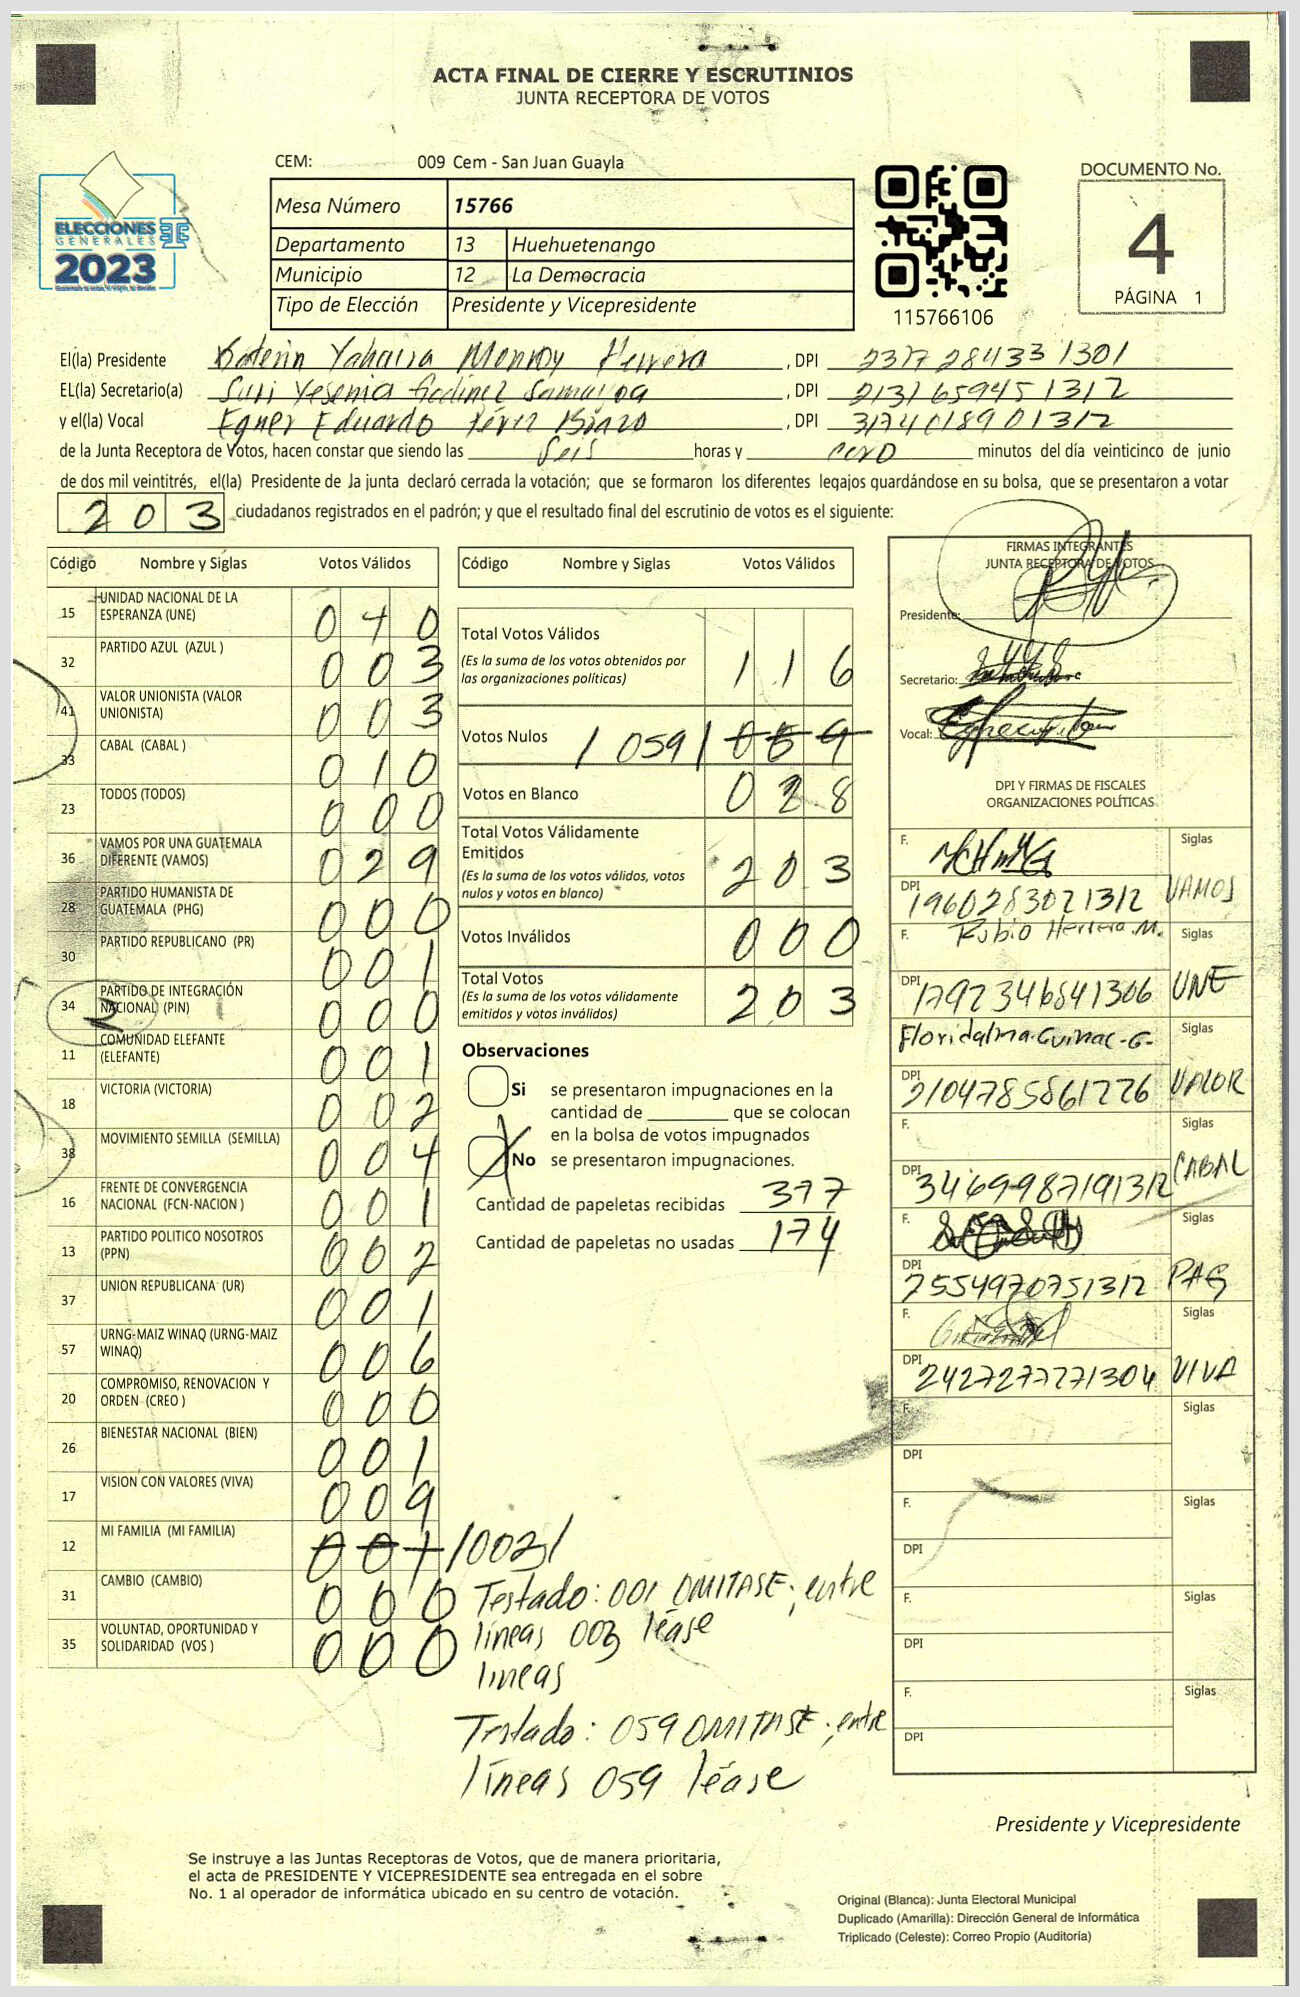 ACTA FINAL DE CIERRE Y ESCRUTINIOS
JUNTA RECEPTORA DE VOTOS
CEM: 009 Cem - San Juan Guayla
ELECCIONES
GENERALES
2023
Mesa Número 15766
Departamento 13 Huehuetenango
Municipio 12 La Democracia
Tipo de Elección Presidente y Vicepresidente
115766106
DOCUMENTO No.
4
PÁGINA 1
El(la) Presidente Katerin Yahaira Monroy Herrera, DPI 2377284331301
EL(la) Secretario(a) Suri Yesenia Godinez Samayoa, DPI 2131659451312
y el(la) Vocal Egner Eduardo Pérez, DPI 3174018901312
de la Junta Receptora de Votos, hacen constar que siendo las Seis horas y cero minutos del día veinticinco de junio
de dos mil veintitrés, el(la) Presidente de la junta declaró cerrada la votación; que se formaron los diferentes legajos guardándose en su bolsa, que se presentaron a votar
203 ciudadanos registrados en el padrón; y que el resultado final del escrutinio de votos es el siguiente:
Código Nombre y Siglas Votos Válidos
15 UNIDAD NACIONAL DE LA ESPERANZA (UNE) 040
32 PARTIDO AZUL (AZUL ) 003
41 VALOR UNIONISTA (VALOR UNIONISTA) 003
33 CABAL (CABAL ) 010
23 TODOS (TODOS) 000
36 VAMOS POR UNA GUATEMALA DIFERENTE (VAMOS) 029
28 PARTIDO HUMANISTA DE GUATEMALA (PHG) 000
30 PARTIDO REPUBLICANO (PR) 001
34 PARTIDO DE INTEGRACIÓN NACIONAL (PIN) 000
11 COMUNIDAD ELEFANTE (ELEFANTE) 001
18 VICTORIA (VICTORIA) 002
38 MOVIMIENTO SEMILLA (SEMILLA) 004
16 FRENTE DE CONVERGENCIA NACIONAL (FCN-NACION ) 001
13 PARTIDO POLITICO NOSOTROS (PPN) 002
37 UNION REPUBLICANA (UR) 001
57 URNG-MAIZ WINAQ (URNG-MAIZ WINAQ) 006
20 COMPROMISO, RENOVACION Y ORDEN (CREO ) 000
26 BIENESTAR NACIONAL (BIEN) 001
17 VISION CON VALORES (VIVA) 009
12 MI FAMILIA (MI FAMILIA) 001 /003/
31 CAMBIO (CAMBIO) 000
35 VOLUNTAD, OPORTUNIDAD Y SOLIDARIDAD (VOS ) 000
Código Nombre y Siglas Votos Válidos
Total Votos Válidos 116
(Es la suma de los votos obtenidos por
las organizaciones políticas)
Votos Nulos /059/ 059
Votos en Blanco 028
Total Votos Válidamente
Emitidos 203
(Es la suma de los votos válidos, votos
nulos y votos en blanco)
Votos Inválidos 000
Total Votos 203
(Es la suma de los votos válidamente
emitidos y votos inválidos)
Observaciones
Si se presentaron impugnaciones en la
cantidad de ________ que se colocan
en la bolsa de votos impugnados
X No se presentaron impugnaciones.
Cantidad de papeletas recibidas 377
Cantidad de papeletas no usadas 174
Testado: 001 OMITASE; entre
líneas 003 léase
líneas
Testado: 059 OMITASE; entre
líneas 059 léase
FIRMAS INTEGRANTES
JUNTA RECEPTORA DE VOTOS
Presidente:
Secretario:
Vocal:
DPI Y FIRMAS DE FISCALES
ORGANIZACIONES POLÍTICAS
F. Siglas
DPI 1960283021312 VAMOS
F. Rubio Herrera M. Siglas
DPI 1792346841306 UNE
Floridalma Guinac-G- Siglas
DPI 2104785861226 VALOR
F. Siglas
DPI 3469987191312 CABAL
F. Siglas
DPI 2554970751312 PAG
F. Siglas
DPI 2427277271304 VIVA
F. Siglas
DPI
F. Siglas
DPI
F. Siglas
DPI
F. Siglas
DPI
Presidente y Vicepresidente
Se instruye a las Juntas Receptoras de Votos, que de manera prioritaria,
el acta de PRESIDENTE Y VICEPRESIDENTE sea entregada en el sobre
No. 1 al operador de informática ubicado en su centro de votación.
Original (Blanca): Junta Electoral Municipal
Duplicado (Amarilla): Dirección General de Informática
Triplicado (Celeste): Correo Propio (Auditoría)